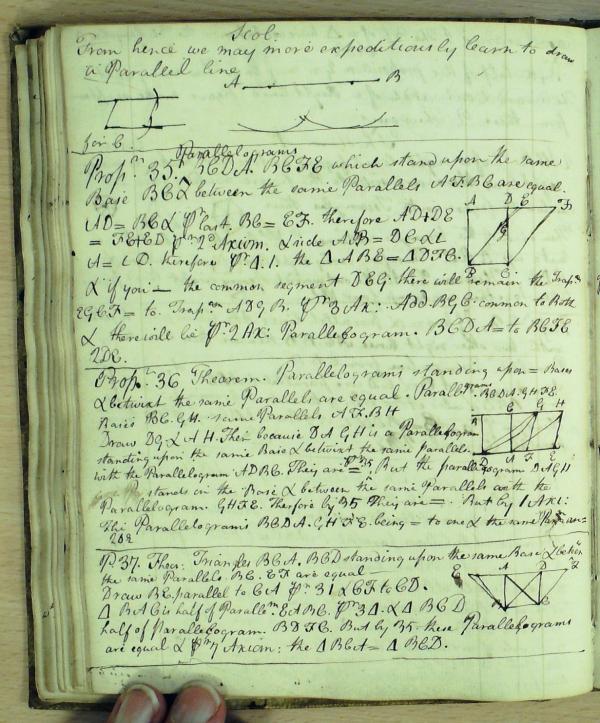 Scol.
From hence we may more expeditiously learn to draw
a Parallel line
A B
for C.
Parallelograms
Prop.n 35. BCDA. BCFE which stand upon the same
Base BC & between the same Parallels AF.BC are equal.
AD = BC & pr last. BC = EF. therefore AD+DE
= FE+ED pr 2d Axiom. & side AB = DC & L
A = L D. therefore pr Δ.1. the Δ ABE = Δ DFC.
& if you — the common segment DEG: there will remain the Trap:
EGCF = to Trap ADGB. pr 3 Ax: Add BGC common to Both
& there will be pr 2 Ax: Parallelogram. BCDA = to BCFE
2DE.
A D E F
G
B C
Prop.n 36 Theorem. Parallelograms standing upon = Bases
& betwixt the same Parallels are equal. Parallelograms BCDA. GHFE.
Bases BC. GH. same Parallels AF.BH
Draw DG & AH. Then because DAGH is a Parallelogram
standing upon the same Base & betwixt the same parallels.
with the Parallelogram ADBC. They are = pr 35 But the parallelogram DAGH
stands in the Base & between the same Parallels with the
Parallelogram. GHFE. Therfore by 35 They are =. But by 1 Ax:
The Parallelograms BCDA. GHFE. being = to one & the same are =
2DE
P. 37. Theo: Triangles BCA. BCD standing upon the same Base & betwn
the same Parallels. BC. EF are equal
Draw BE parallel to CA pr 31 & CF to CD.
Δ BAC is half of Parallm. EABC. pr 34. & Δ BCD
half of Parallelogram. BDFC. But by 35 these Parallelograms
are equal & pr 7 Axiom: the Δ BCA = Δ BCD.
E A D F
B C